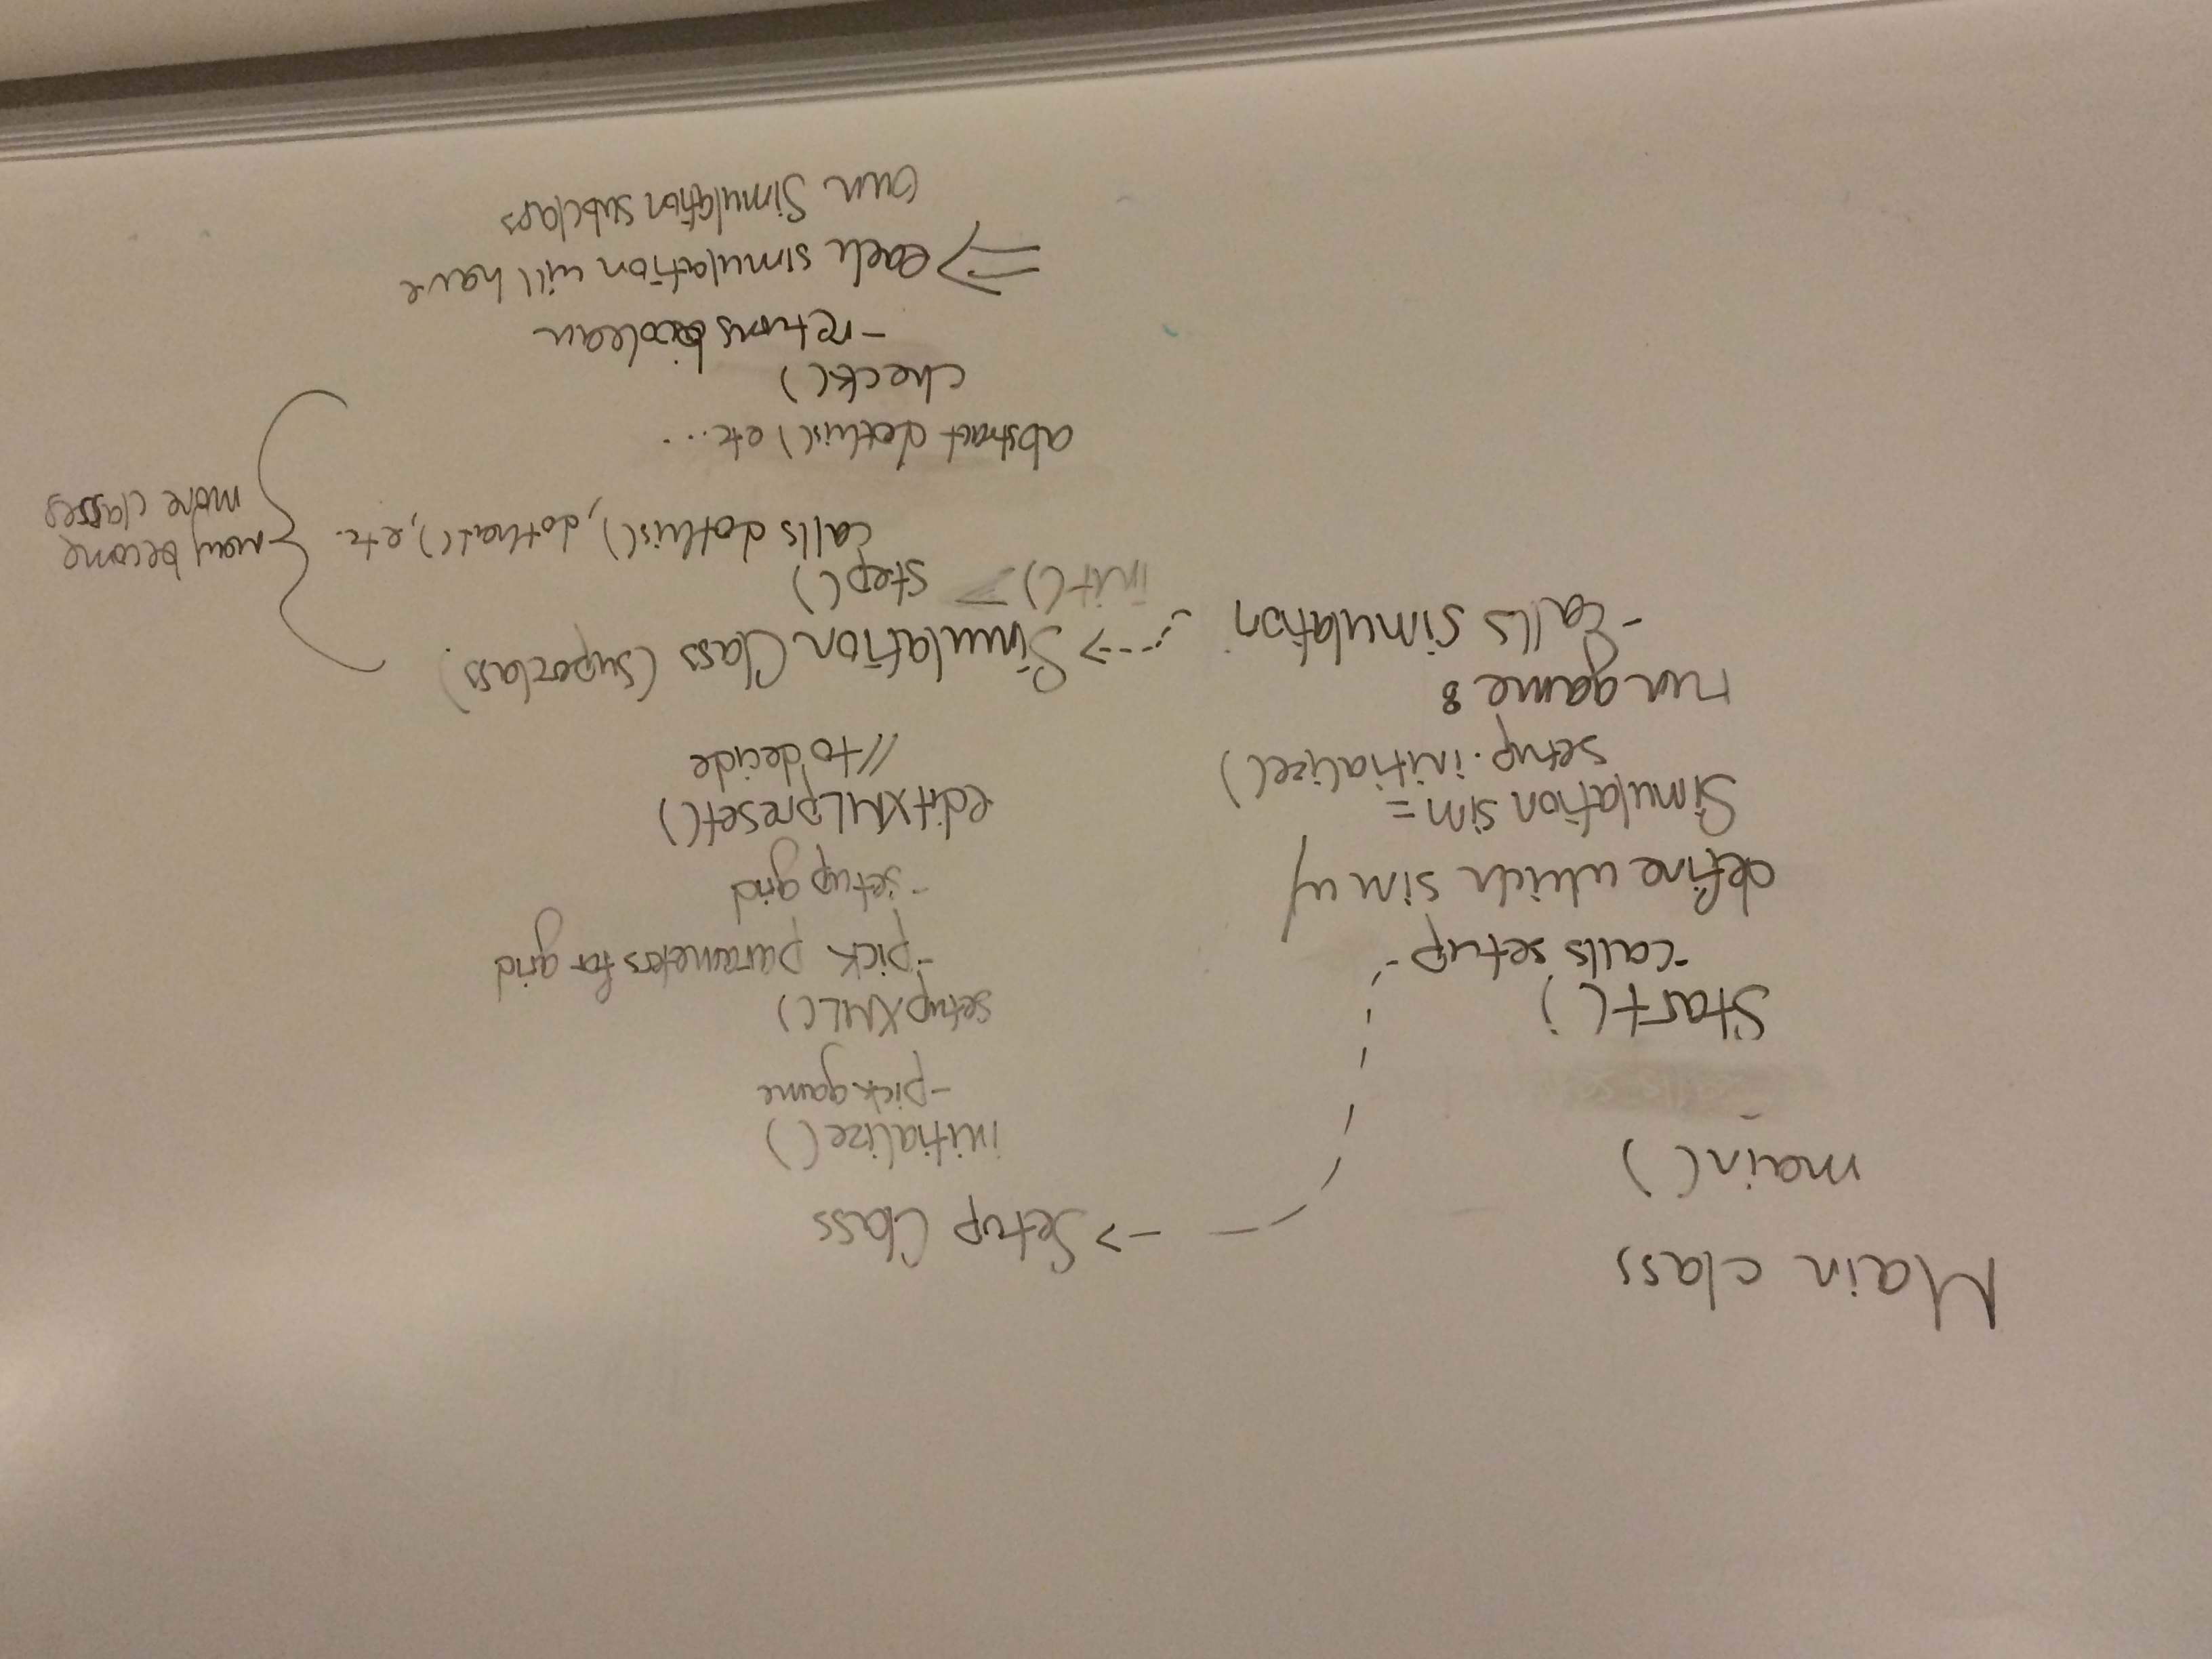 Main class
main()
Start()
-calls setup
define which sim w/
Simulation sim =
setup.initialize()
run game:
-calls simulation
Setup Class
initialize()
-pick game
setupXML()
-pick parameters for grid
-setup grid
editXMLpreset()
//to decide
Simulation Class (superclass)
init()
step()
calls dothis(), dothat(), etc.
abstract dothis() etc...
check()
-returns boolean
⇒ each simulation will have
own Simulation subclass
may become
more classes